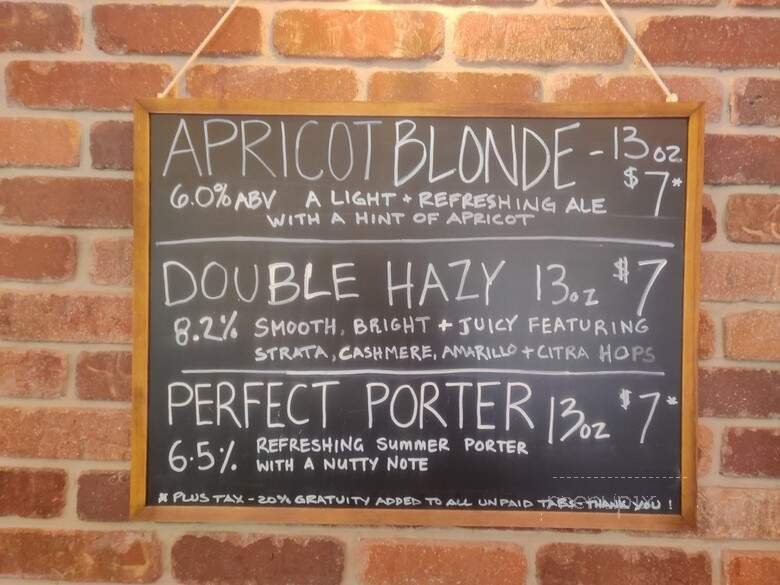 APRICOT BLONDE - 13 oz
$7*
6.0% ABV A LIGHT + REFRESHING ALE
WITH A HINT OF APRICOT
DOUBLE HAZY 13oz $7
8.2% SMOOTH, BRIGHT + JUICY FEATURING
STRATA, CASHMERE, AMARILLO + CITRA HOPS
PERFECT PORTER 13oz $7*
6.5% REFRESHING SUMMER PORTER
WITH A NUTTY NOTE
* PLUS TAX - 20% GRATUITY ADDED TO ALL UNPAID TABS THANK YOU !